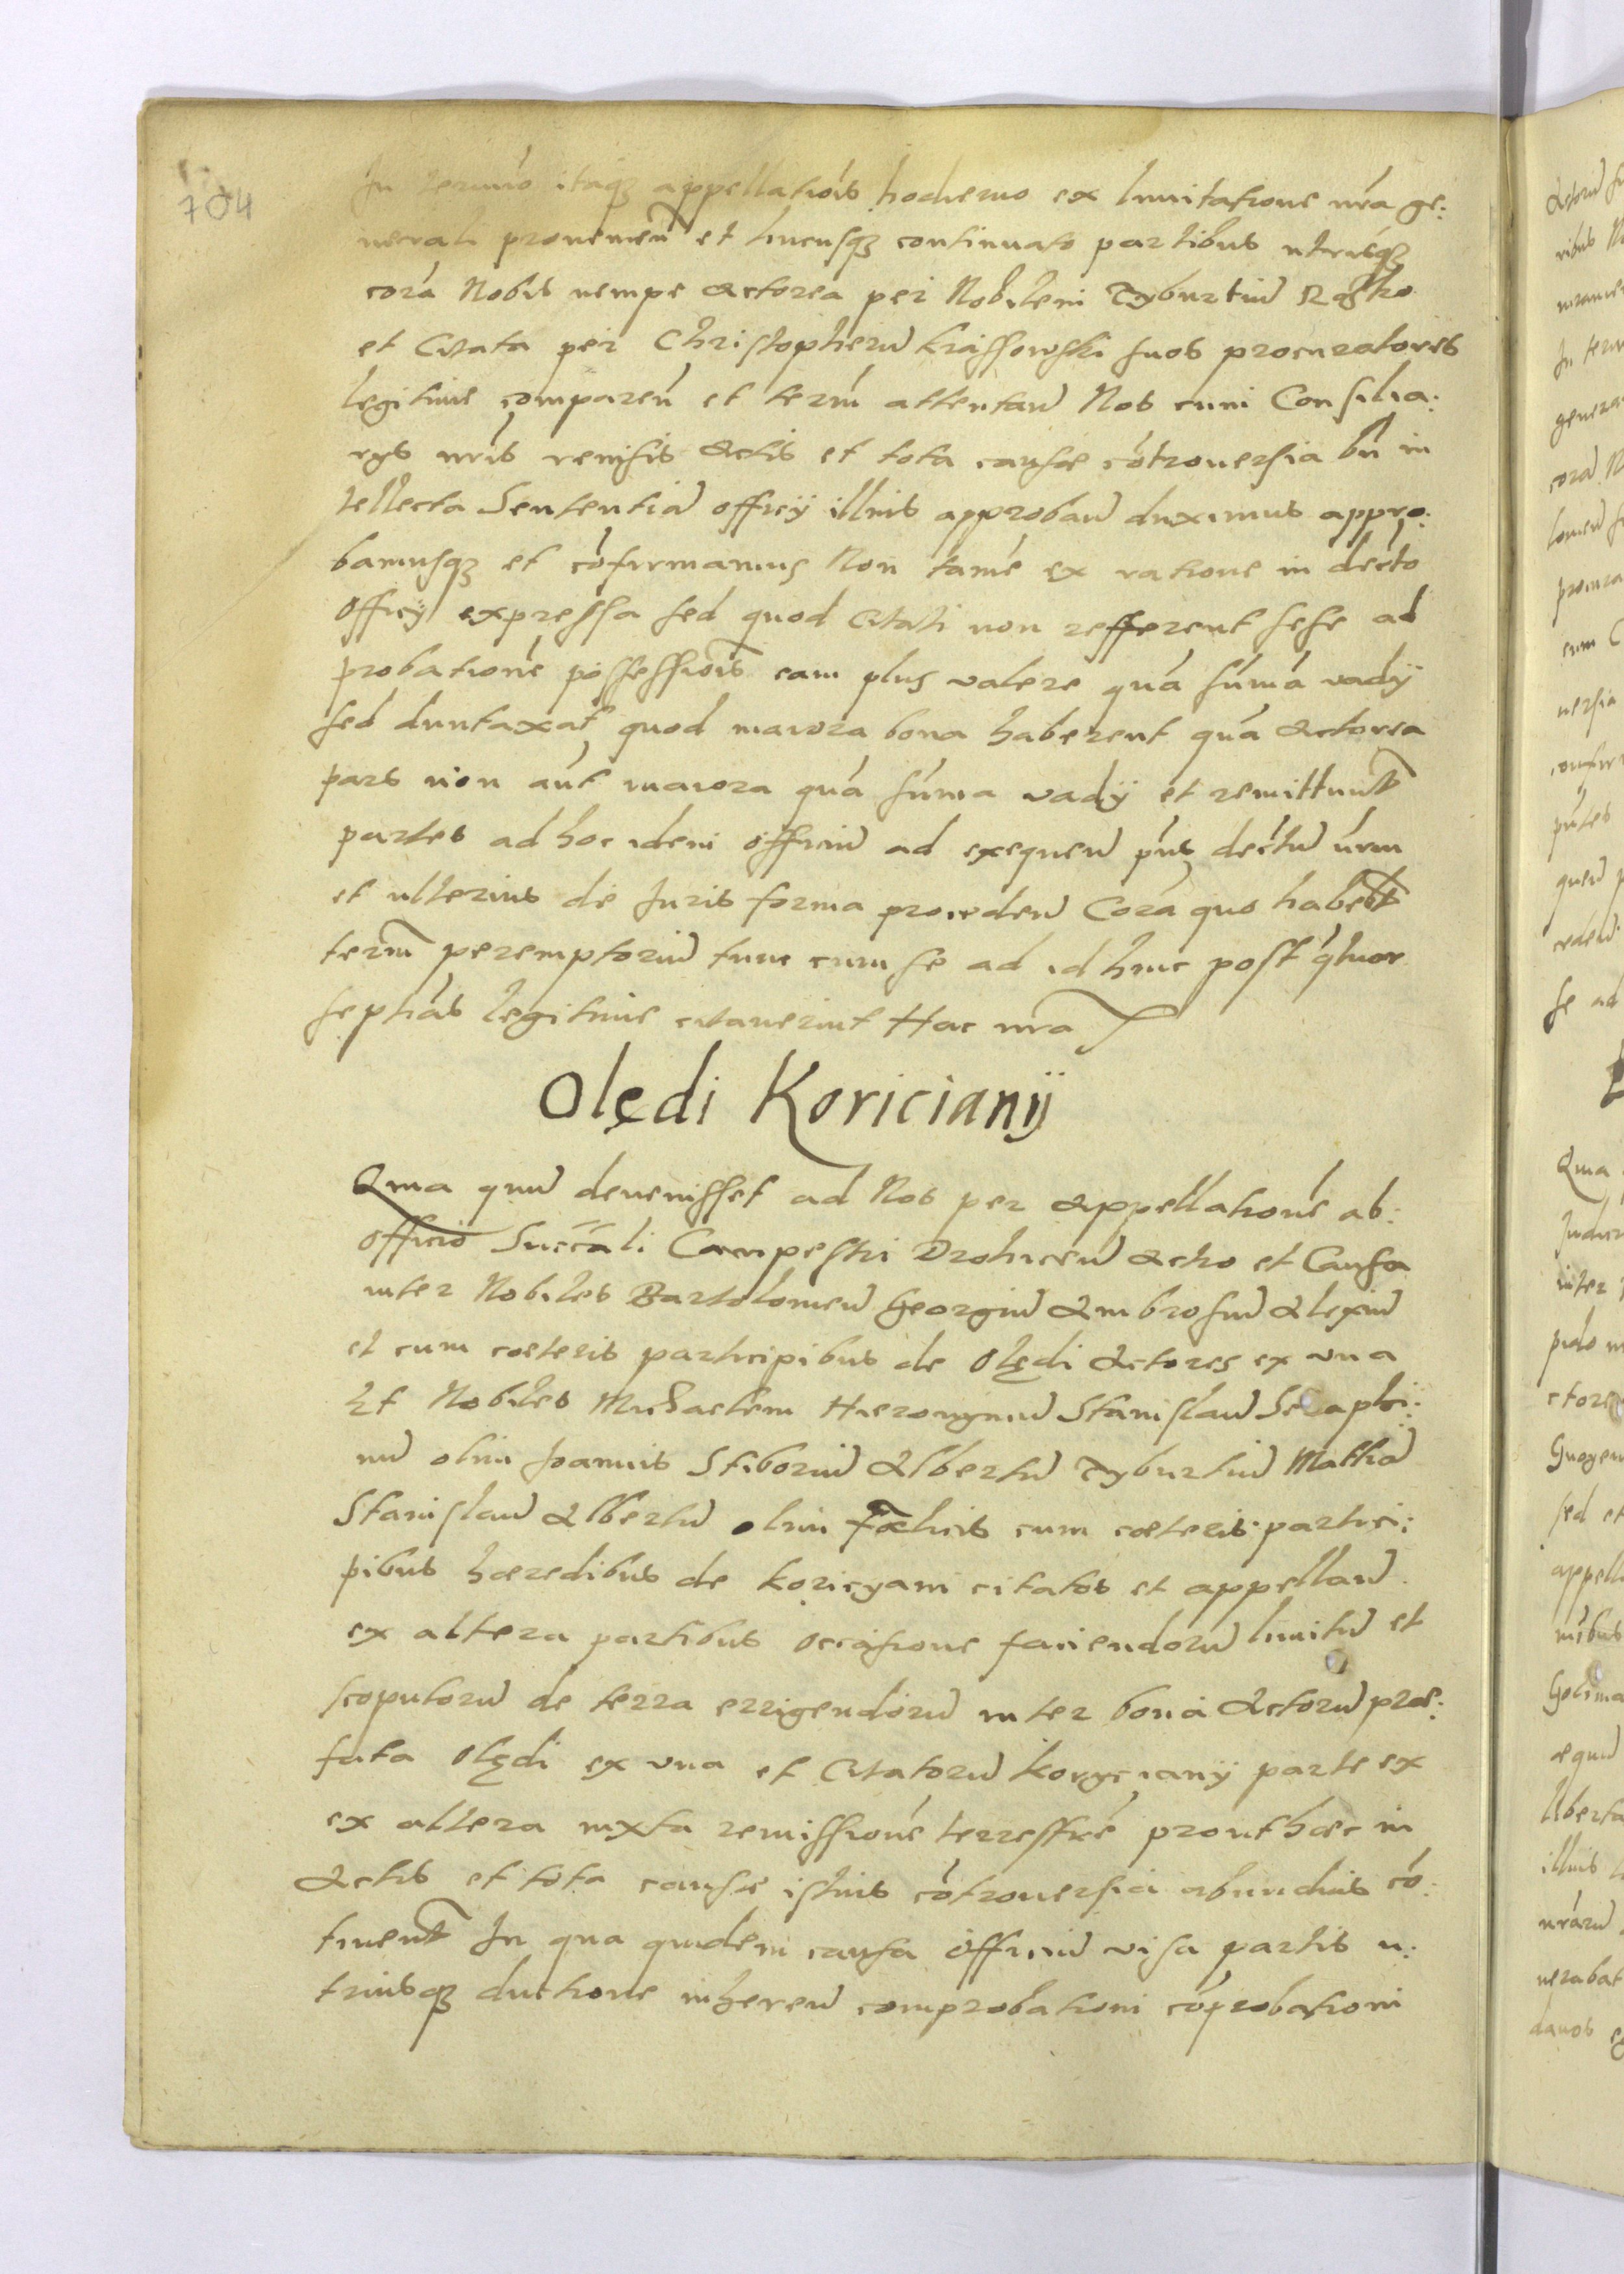 704
In termio itaqȝ appellatiois hodierno ex limitatione nra ge:
nerali provenien et hucusqȝ continuato partibus utrisqȝ
cora Nobis nempe Actorea per Nobilem Tyburtiu
et Citata per Christopheru Krassowski suos procuratores
legitime comparen et term attentan Nos cum Consilia:
rys nris revisis Actis et tota causae cotroversia bn in
tellecta Sententia officij illius approban duximus appro:
bamusqȝ et cofirmamus Non tame ex ratione in decto
Officij expressa sed quod Citati non refferent sese ad
probatione possessiois eam plus valere qua suma vadij
sed duntaxat quod maiora bona haberent qua Actorea
pars non aut maiora qua suma vadij et remittunt
partes ad hoc idem officiu ad exequen pns dectu nrm
et ulterius de Juris forma proceden Cora quo habebt
term peremptoriu tunc cum se ad id hinc post qtuor
septias legitime citaverint Hac nra
Olędi Koricianij
Qma quu devenisset ad Nos per Appellatione ab:
officio Succali Campestri Drohicen Actio et Causa
inter Nobiles Bartolomeu Georgiu Ambrosiu Alexiu
et cum coeteris participibus de Olędi Actores ex una
Et Nobiles Michaelem Hieronymu Stanislau Seraphi:
nu olim Joannis Stiboriu Albertu Tyburtiu Mathia
Stanislau Albertu olim Foelicis cum coeteris partici:
pibus hoeredibus de Koricyani citatos et appellan
ex altera partibus occasione faciendoru limitu et
scopuloru de terra errigendoru inter bona Actoru prae:
fata Olędi ex una et Citatoru Korycianij parte ex
ex altera iuxta remissione terrestre prout haec in
Actis et tota causae istius cotroversia abundius co:
tinent In qua quidem causa Officiu visa partis u:
triusqȝ ductione inheren comprobationi coprobationi